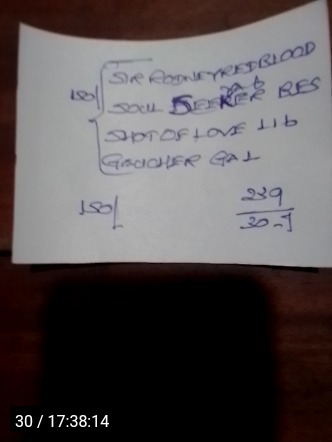 SIR RODNEY REDBLOOD
150/ SOUL SEEKER RES
SHOT OF LOVE 116
GAUCHER GAL
150/
239
30-7
30 / 17:38:14